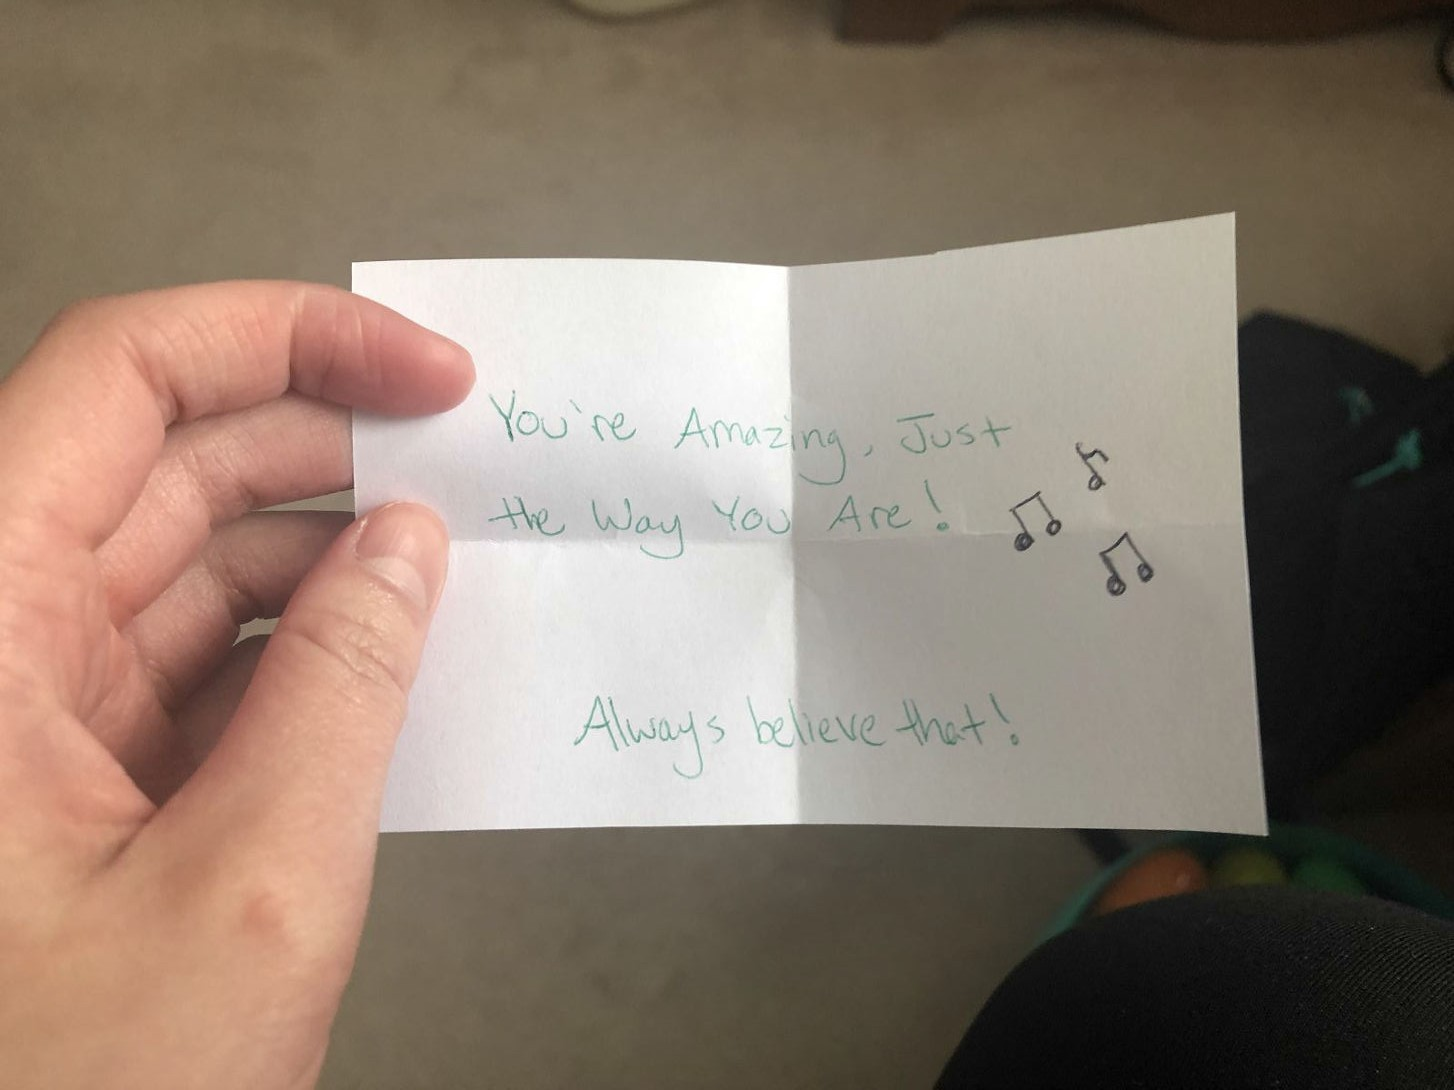 You're Amazing, Just
the Way You Are!
Always believe that!